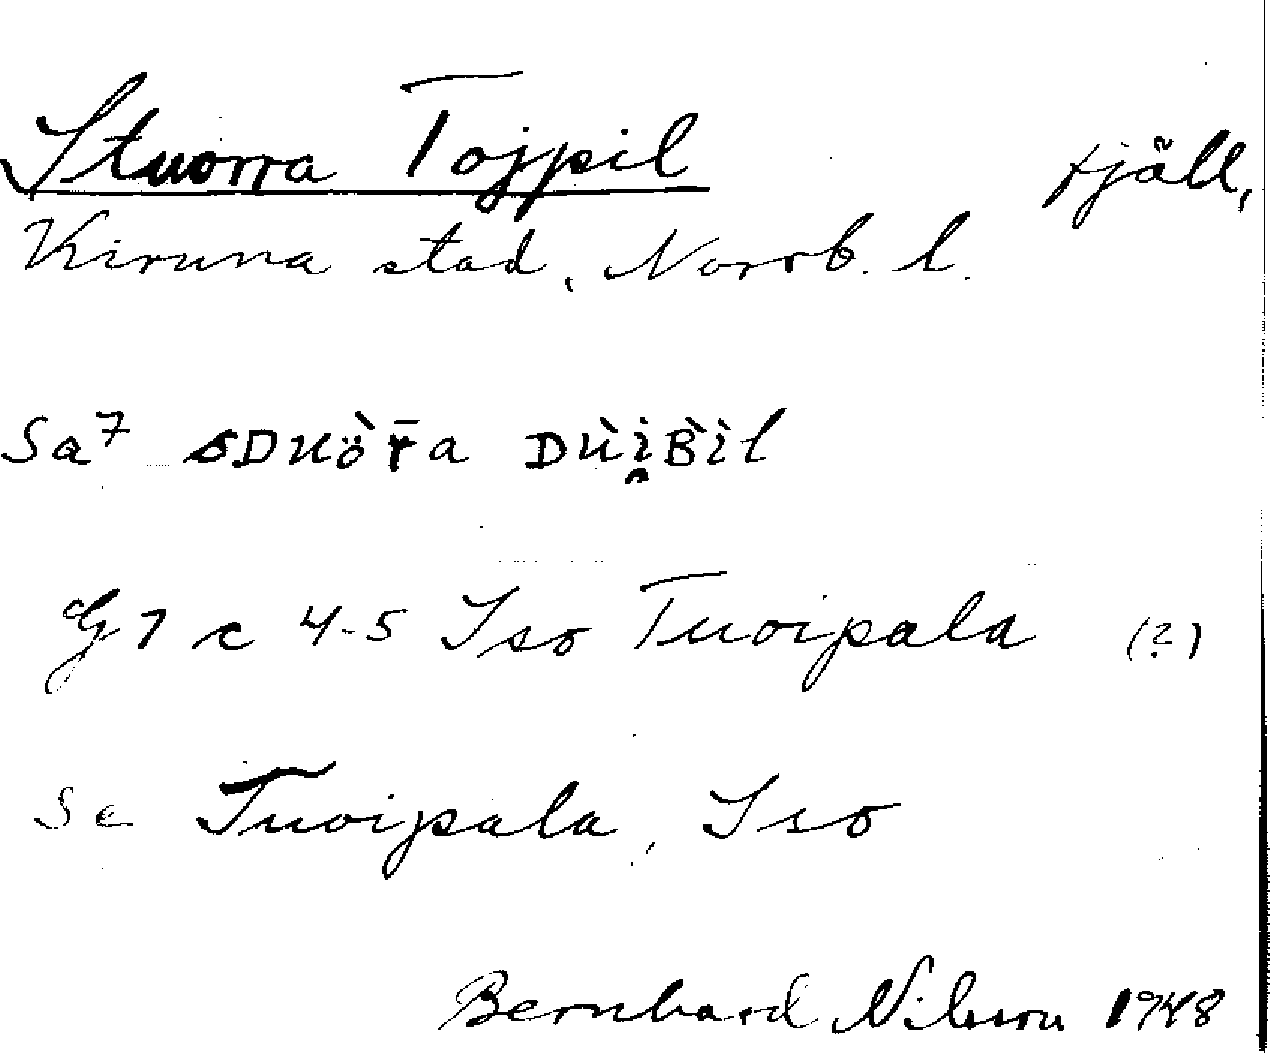 Stuorra Tojpil fjäll,
Kiruna stad, Norrb. l.
Sa7 sDuò̈r̄a Dùi̯B̀ìl
G 7 c 4-5 Iso Tuoipala (?)
Se Tuoipala, Iso
Bernhard Nilsson 1948